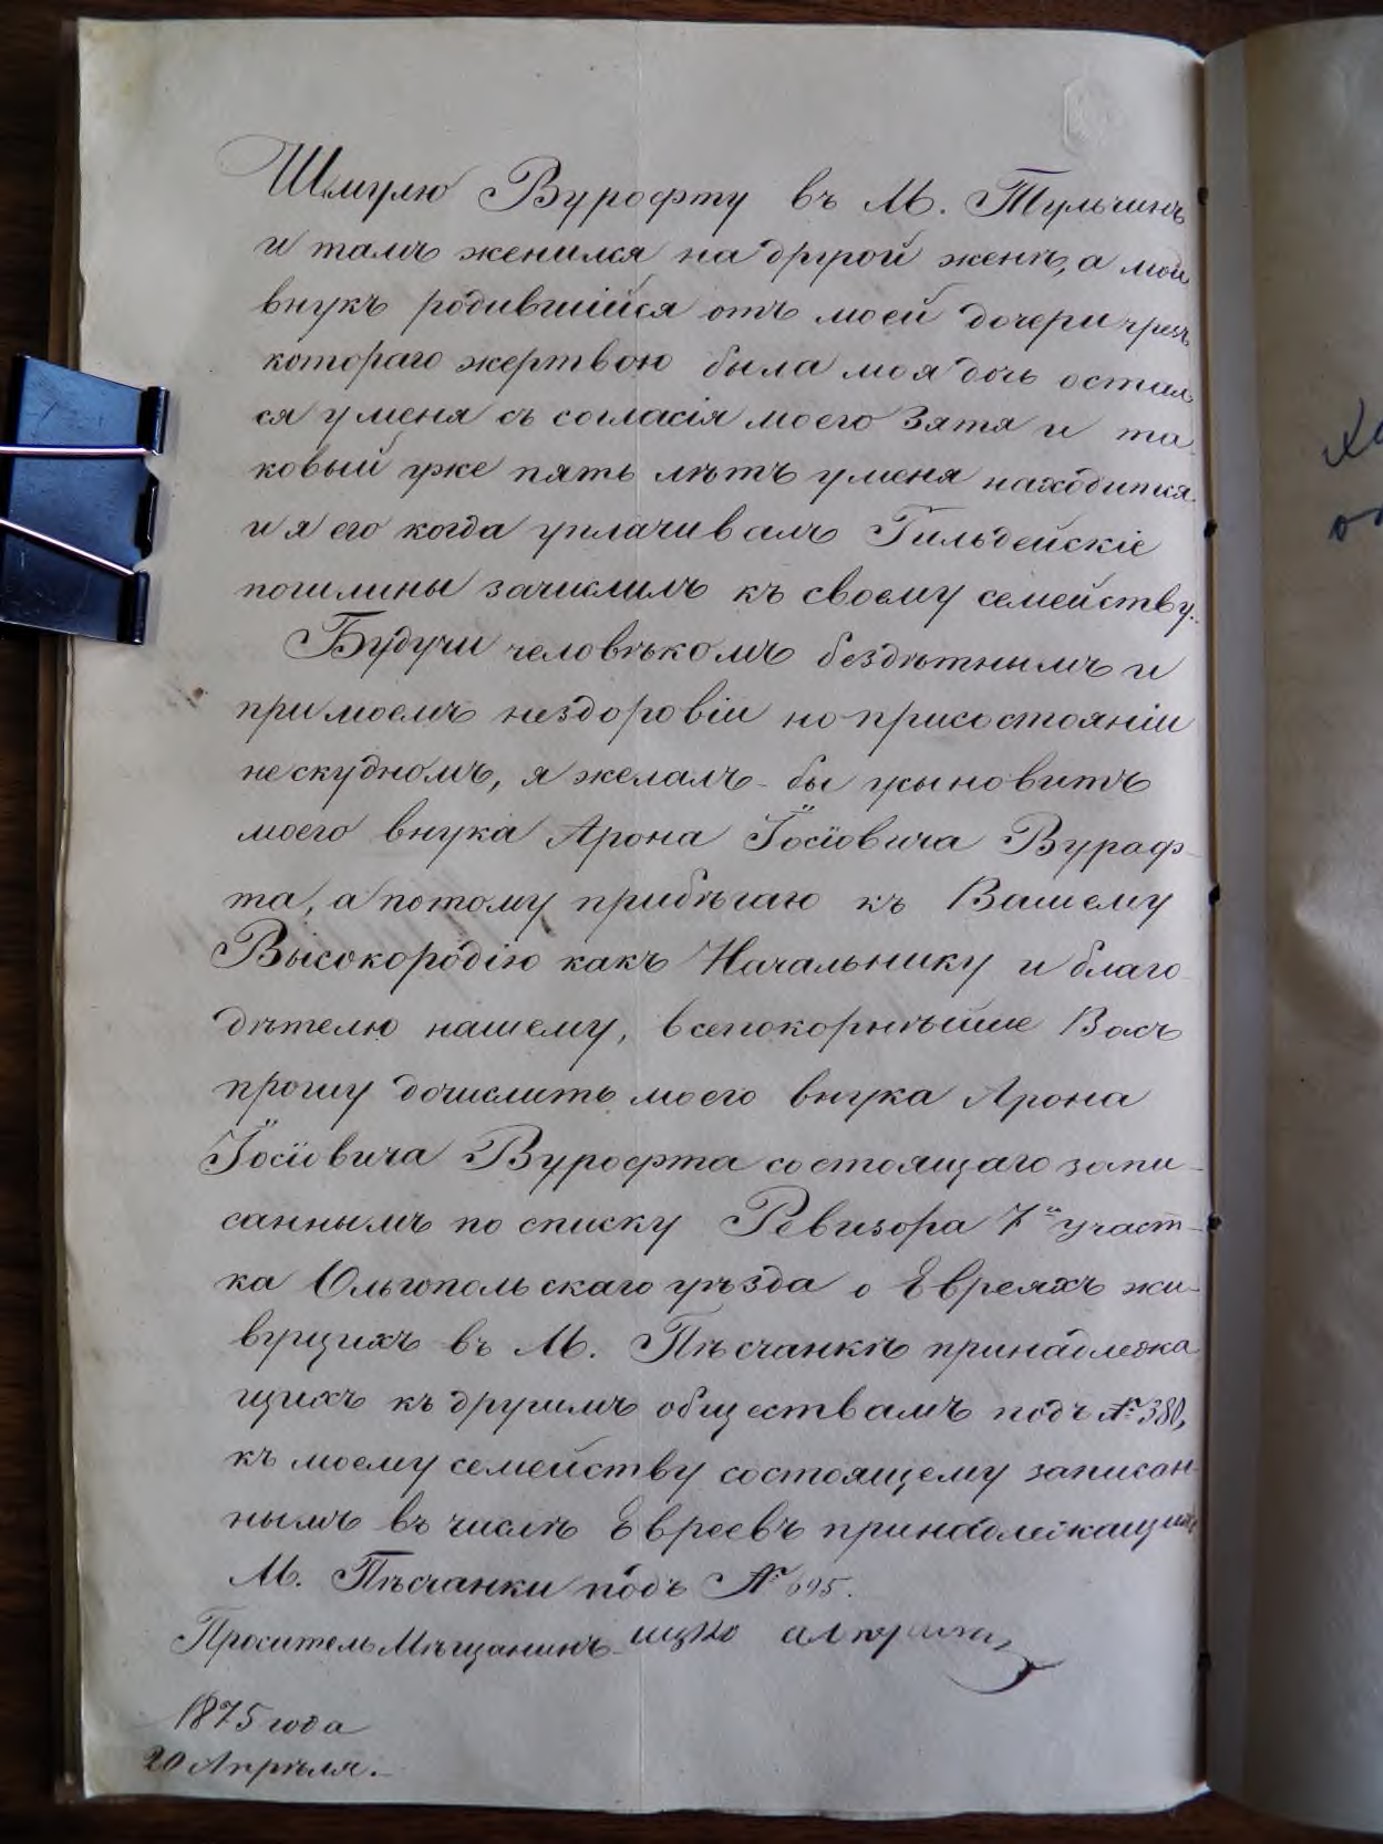 Шмулю Вурофту въ М. Тульчинъ
и тамъ женился на другой женѣ, а мой
внукъ родившійся отъ моей дочери чрезъ
котораго жертвою была моя дочь остал
ся у меня съ согласія моего Зятя и та
ковый уже пять лѣтъ у меня находится
и я его когда уплачивалъ Гильдейскіе
пошлины зачислилъ къ своему семейству.
Будучи человѣкомъ бездѣтнымъ и
при моемъ нездоровіи но присостояніи
нескудномъ, я желалъ-бы усыновитъ
моего внука Арона Іосіовича Вураф-
та, а потому прибѣгаю къ Вашему
Высокородію какъ Начальнику и благо
дѣтелю нашему, всепокорнѣйше Васъ
прошу дочислить моего внука Арона
Іосіовича Вурофта состоящаго запи-
саннымъ по списку Ревизора 7го участ-
ка Ольгопольскаго уѣзда о Евреяхъ жи-
вущихъ въ М. Пѣсчанкѣ принадлежа
щихъ къ другимъ обществамъ подъ № 380,
къ моему семейству состоящему записан-
нымъ въ числѣ Евреевъ принадлежащихъ
М. Пѣсчанки подъ № 695.
Проситель Мѣщанинъ ицко
1875 года
20 Апрѣля.